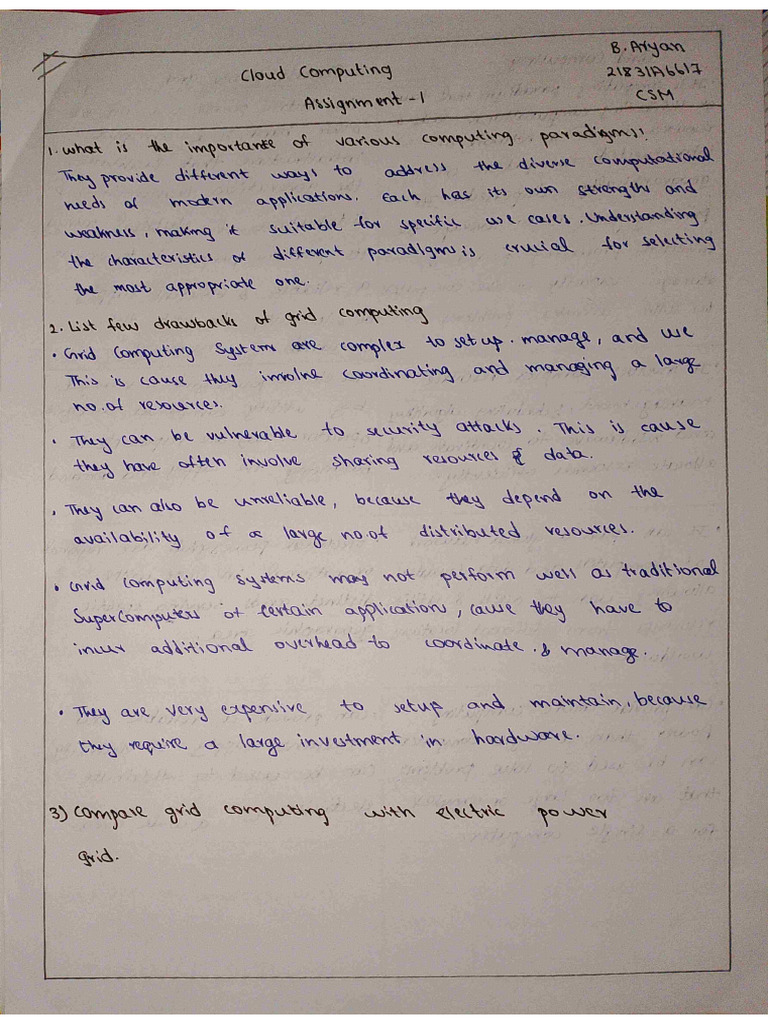 B. Aryan
Cloud Computing
21831A6617
Assignment -1
CSM
1. what is the importance of various computing paradigms?
They provide different ways to address the diverse computational
needs of modern applications. Each has its own strengths and
weakness, making it suitable for specific use cases. Understanding
the characteristics of different paradigms is crucial for selecting
the most appropriate one.
2. List few drawbacks of grid computing
• Grid Computing Systems are complex to setup. manage, and use
This is cause they involve coordinating and managing a large
no. of resources.
• They can be vulnerable to security attacks. This is cause
they have often involve sharing resources & data.
• They can also be unreliable, because they depend on the
availability of a large no. of distributed resources.
• Grid computing systems may not perform well as traditional
Supercomputers of certain applications, cause they have to
incur additional overhead to coordinate & manage.
• They are very expensive to setup and maintain, because
they require a large investment in hardware.
3) Compare grid computing with electric power
grid.